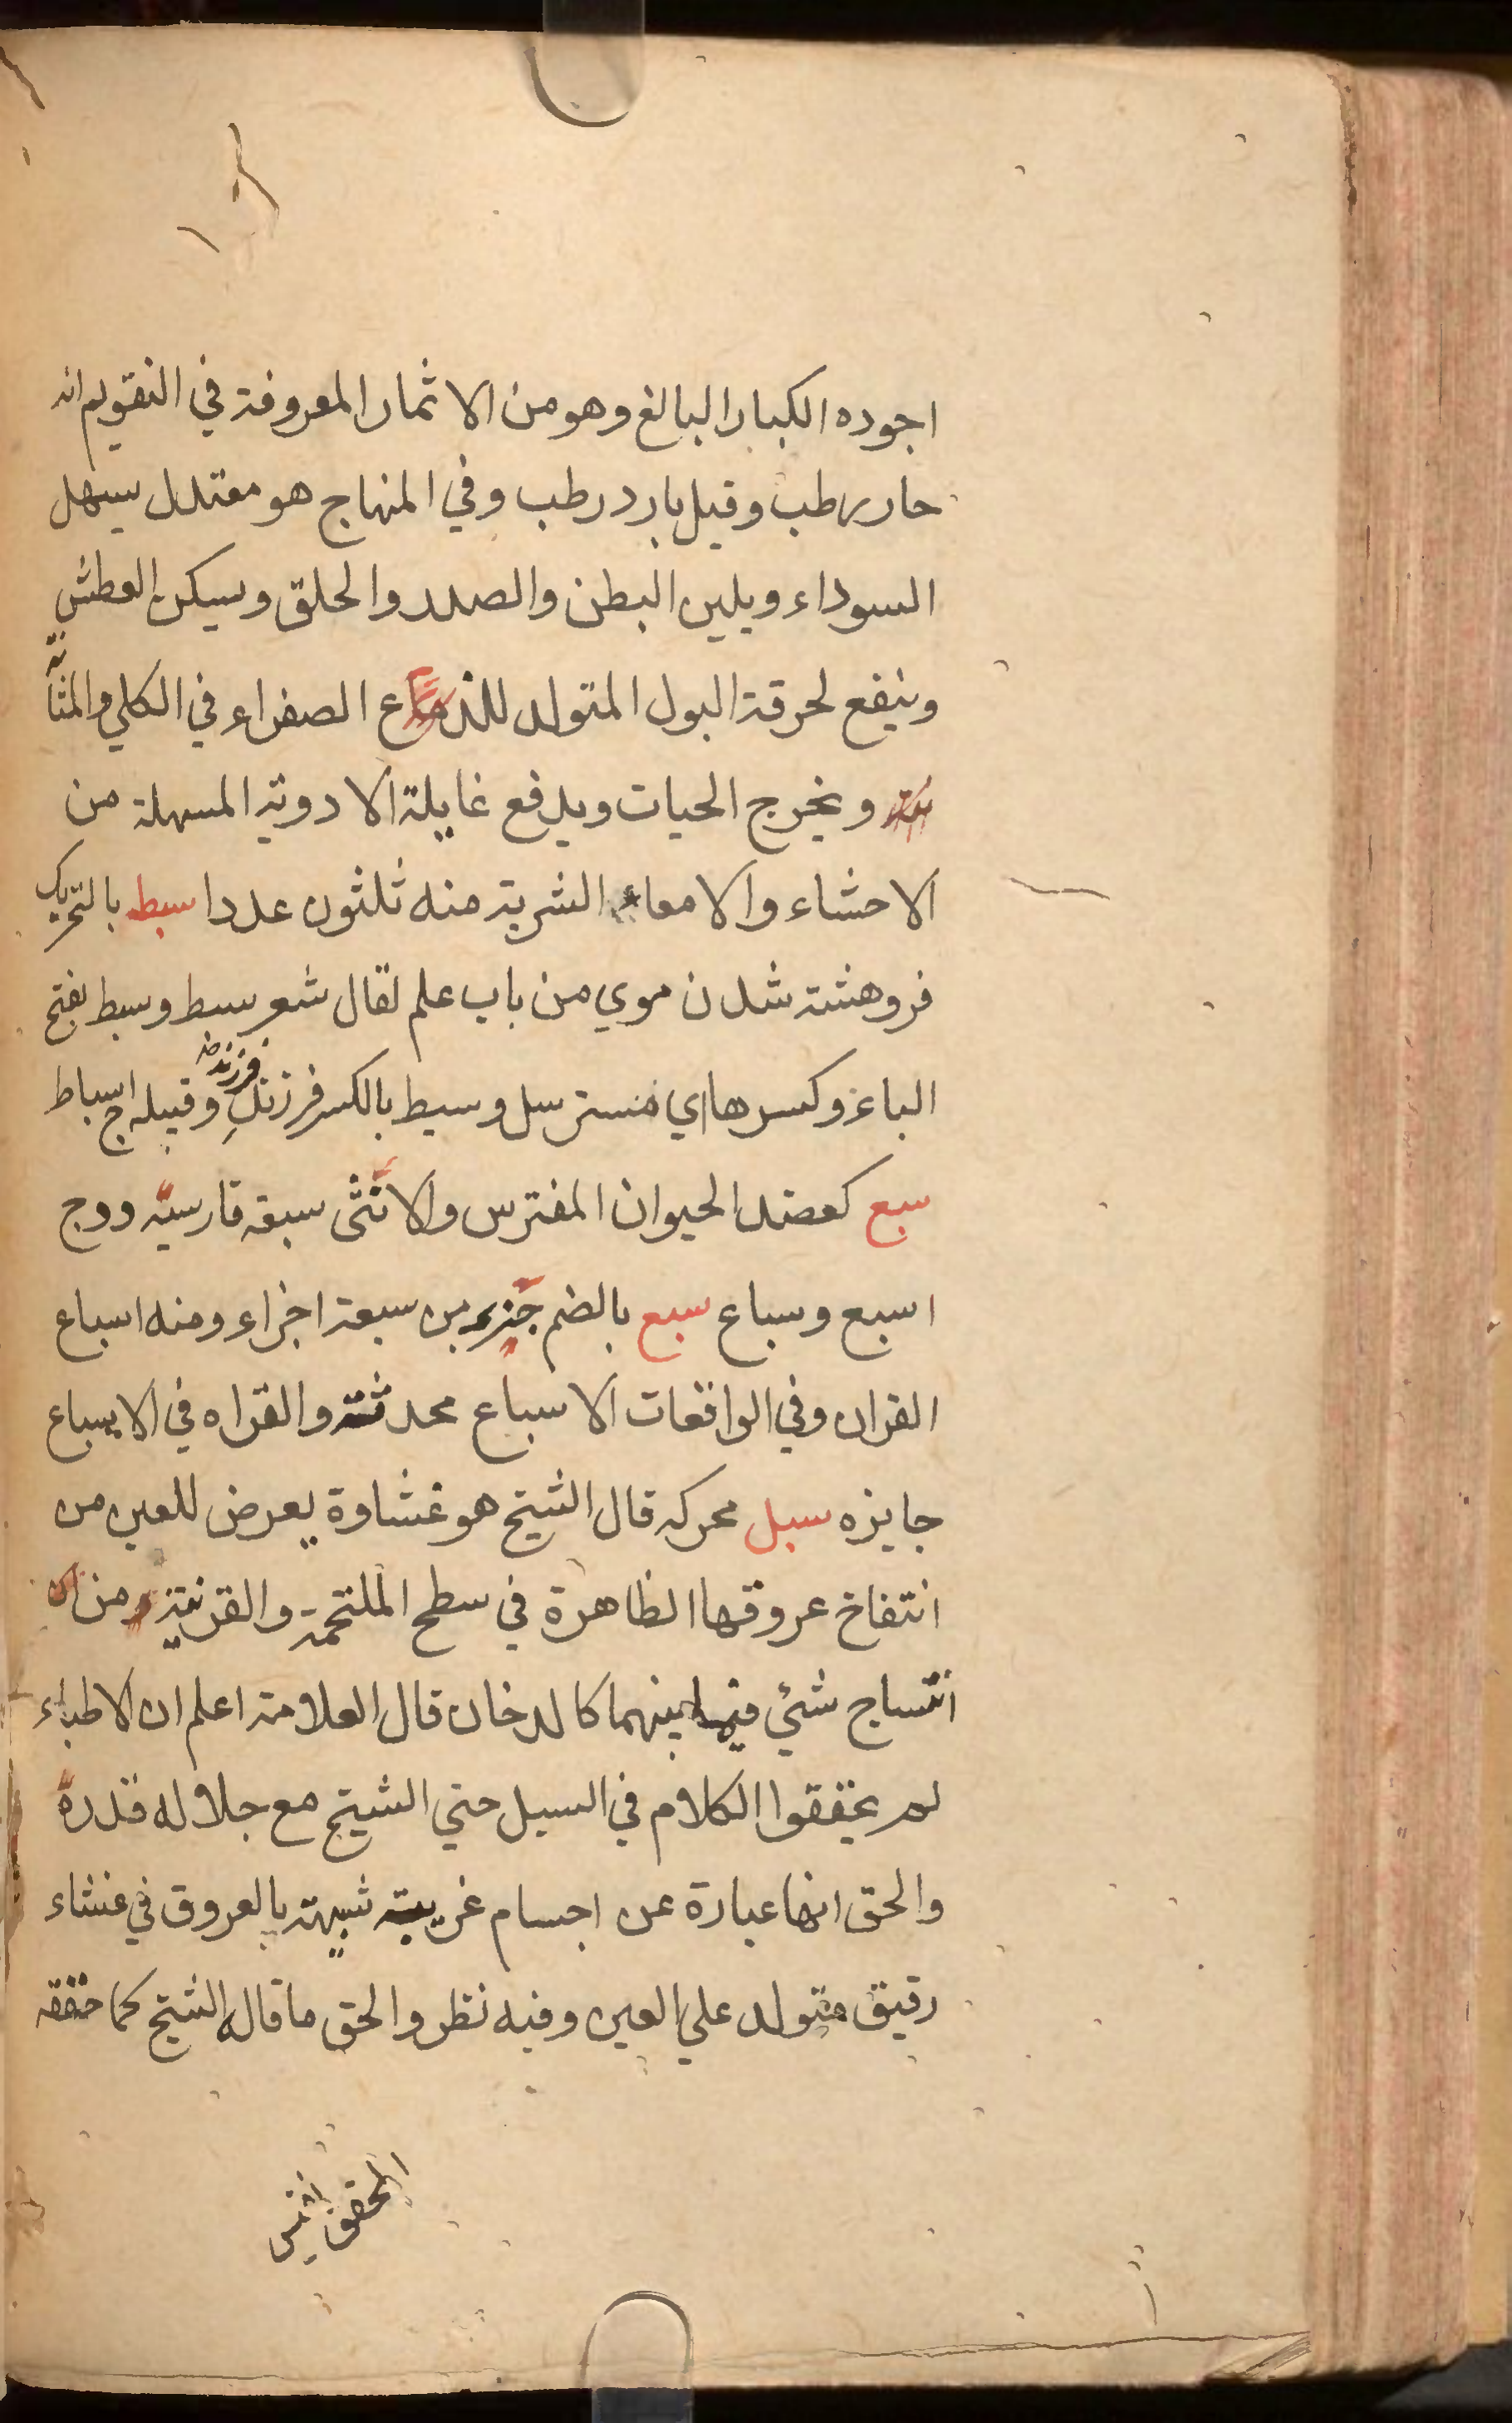 اجوده الكبار البالغ وهو من الاثمار المعروفة في التقويم انه
حار رطب وقيل بارد رطب وفي المنهاج هو معتدل يسهل
السوداء ويلين البطن والصدر والحلق ويسكن العطش
وينفع لحرقة البول المتولد الصفراء في الكلي والمثانة
ويخرج الحيات ويدفع غايلة الادوية المسهلة من
الاحشاء والامعاء الشربة منه ثلثون عددا سبط بالتحريك
فروهشته شدن موي من باب علم يقال شعر سبط وسبط بفتح
الباء وكسرها اي مسترسل وسبط بالكسر فرزند فرزند وقبيله ج اسباط
سبع كعضد الحيوان المفترس والانثى سبعة فارسيه دد ج
اسبع وسباع سبع بالضم جزء من سبعة اجزاء ومنه اسباع
القران وفي الواقعات الاسباع محدثة والقراه في الاسباع
جايزه سبل محركه قال الشيخ هو غشاوة يعرض للعين من
انتفاخ عروقها الظاهرة في سطح الملتحمة والقرنية من
انتساج شئي فيما بينهما كالدخان قال العلامة اعلم ان الاطباء
لم يحققوا الكلام في السبل حتي الشيخ مع جلاله قدره
والحق انها عبارة عن اجسام غريبة شبيهة بالعروق في غشاء
رقيق متولد علي العين وفيه نظر والحق ما قال الشيخ كما حققه
المحقق